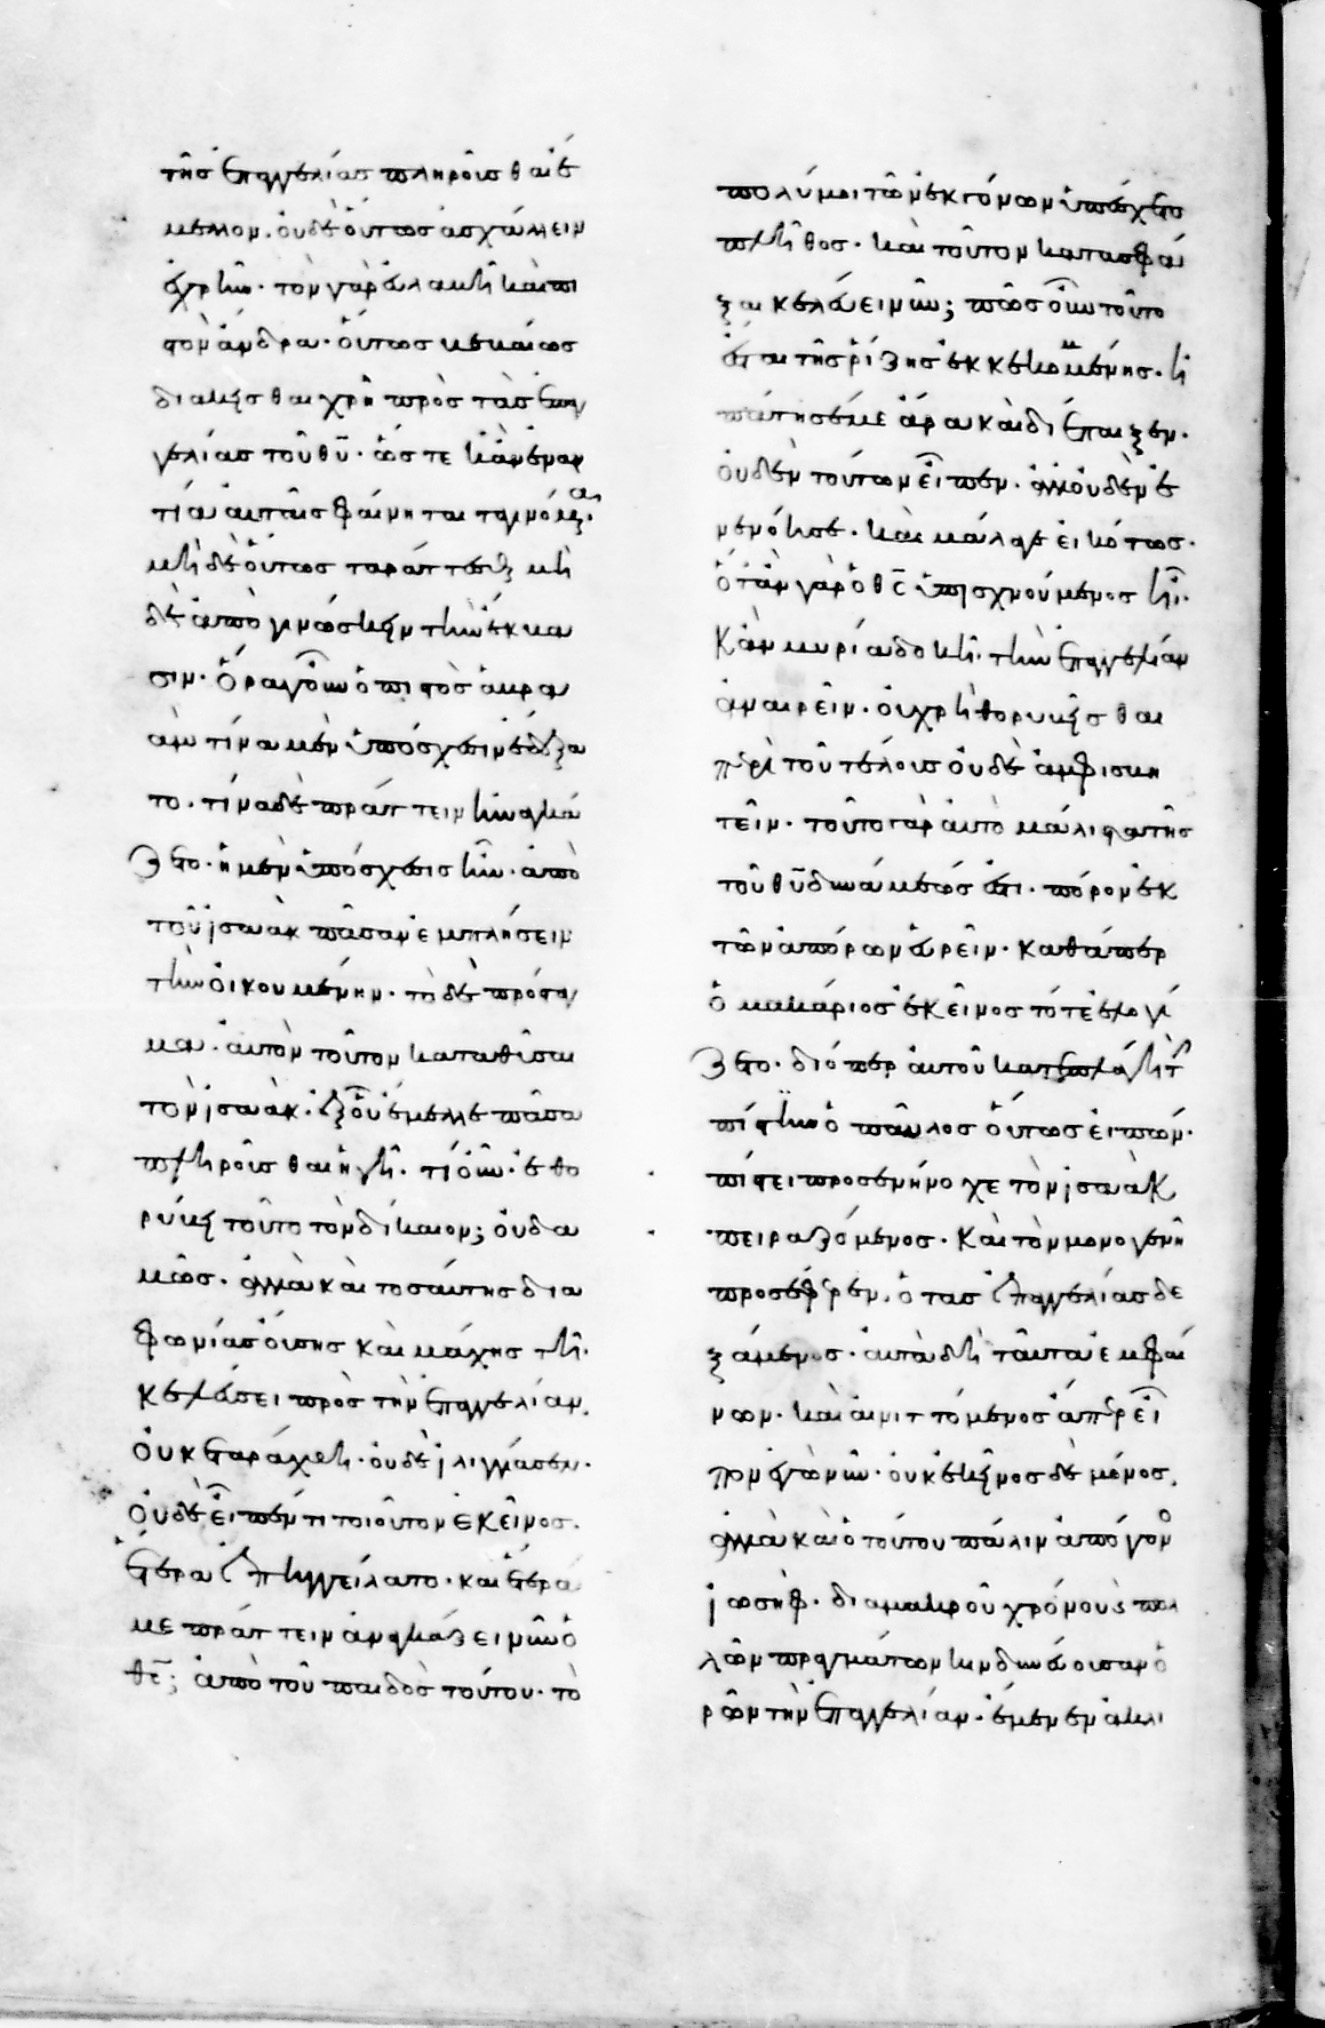 τῆς ἐπαγγελίας πληροῦσθαι ἔ
μελλον. οὐδὲ οὕτως ἀσχάλλειν
ἐχρῆν. τὸν γὰρ ἀλακῆ καὶ πι
στὸν ἄνδρα. οὕτως βεβαίως
διακεῖσθαι χρὴ πρὸς τὰς ἐπαγ
γελίας τοῦ θυ. ὥστε κἂν ἐναν
τία αὐταῖς φαίνηται τὰ γινόμενα.
μὴ δὲ οὕτως ταράττεσθαι μὴ
δὲ ἀπογινώσκειν τὴν ἔκβα
σιν. ὅρα γοῦν ὁ πιστὸς ἀβρα
ὰμ τίνα μὲν ὑπόσχεσιν ἐδέξα
το. τίνα δὲ πράττειν ἠναγκά
ζετο. ἡ μὲν ὑπόσχεσις ἦν. ἀπὸ
τοῦ ἰσαὰκ πᾶσαν ἐμπλήσειν
τὴν οἰκουμένην. τὸ δὲ πρόσταγ
μα. αὐτὸν τοῦτον καταθῦσαι
τὸν ἰσαὰκ. ἐξ οὗ ἔμελλε πᾶσα
πληροῦσθαι ἡ γῆ. τί οὖν. ἐθο
ρύβει τοῦτο τὸν δίκαιον; οὐδα
μῶς. ἀλλὰ καὶ τοσαύτης δια
φωνίας οὔσης καὶ μάχης τῆ.
κελεύσει πρὸς τὴν ἐπαγγελίαν.
οὐκ ἐταράχθη. οὐδὲ ἰλιγγίασεν.
οὐδὲ εἶπέν τι τοιοῦτον ἐκεῖνος.
ἕτερα ἐπηγγείλατο. καὶ ἕτερά
με πράττειν ἀναγκάζει νῦν ὁ
θς; ἀπὸ τοῦ παιδὸς τούτου. τὸ
πολύ μοι τῶν ἐκγόνων ὑπέσχετο
πλῆθος. καὶ τοῦτον κατασφά
ξαι κελεύει νῦν; πῶς οὖν τοῦτο
ἔσται τῆς ῥίζης ἐκκεκομμένης. ἠ
πάτησέ με ἄρα καὶ διέπαιξεν.
οὐδὲν τούτων εἶπεν. ἀλλ' οὐδὲ ἐ
νενόησε. καὶ μάλα γε εἰκότως.
ὅταν γὰρ ὁ θς ὑπισχνούμενος ἦ.
κἂν μυρία δοκῆ. τὴν ἐπαγγελίαν
ἀναιρεῖν. οὐ χρὴ θορυβεῖσθαι
περὶ τοῦ τέλους οὐδὲ ἀμφισβη
τεῖν. τοῦτο γὰρ αὐτὸ μάλιστα τῆς
τοῦ θυ δυνάμεώς ἐστι. πόρον ἐκ
τῶν ἀπόρων εὑρεῖν. καθάπερ
ὁ μακάριος ἐκεῖνος τότε ἐλογί
ζετο. διόπερ αὐτοῦ καταπλαγεὶς τὴν
πίστιν ὁ παῦλος οὕτως εἰπών.
πίστει προσενήνοχε τὸν ἰσαὰκ
πειραζόμενος. καὶ τὸν μονογενῆ
προσέφερεν. ὁ τὰς ἐπαγγελίας δε
ξάμενος. αὐτὰ δὴ ταῦτα ἐμφαί
νων. καὶ αἰνιττόμενος ἅπερ εἶ
πον ἐγὼ νῦν. οὐκ ἐκεῖνος δὲ μόνος.
ἀλλὰ καὶ ὁ τούτου πάλιν ἀπόγονος
ἰωσὴφ. διὰ μακροῦ χρόνου καὶ πολ
λῶν πραγμάτων κινδυνεύουσαν ὁ
ρῶν τὴν ἐπαγγελίαν. ἔμενεν ἀκλι